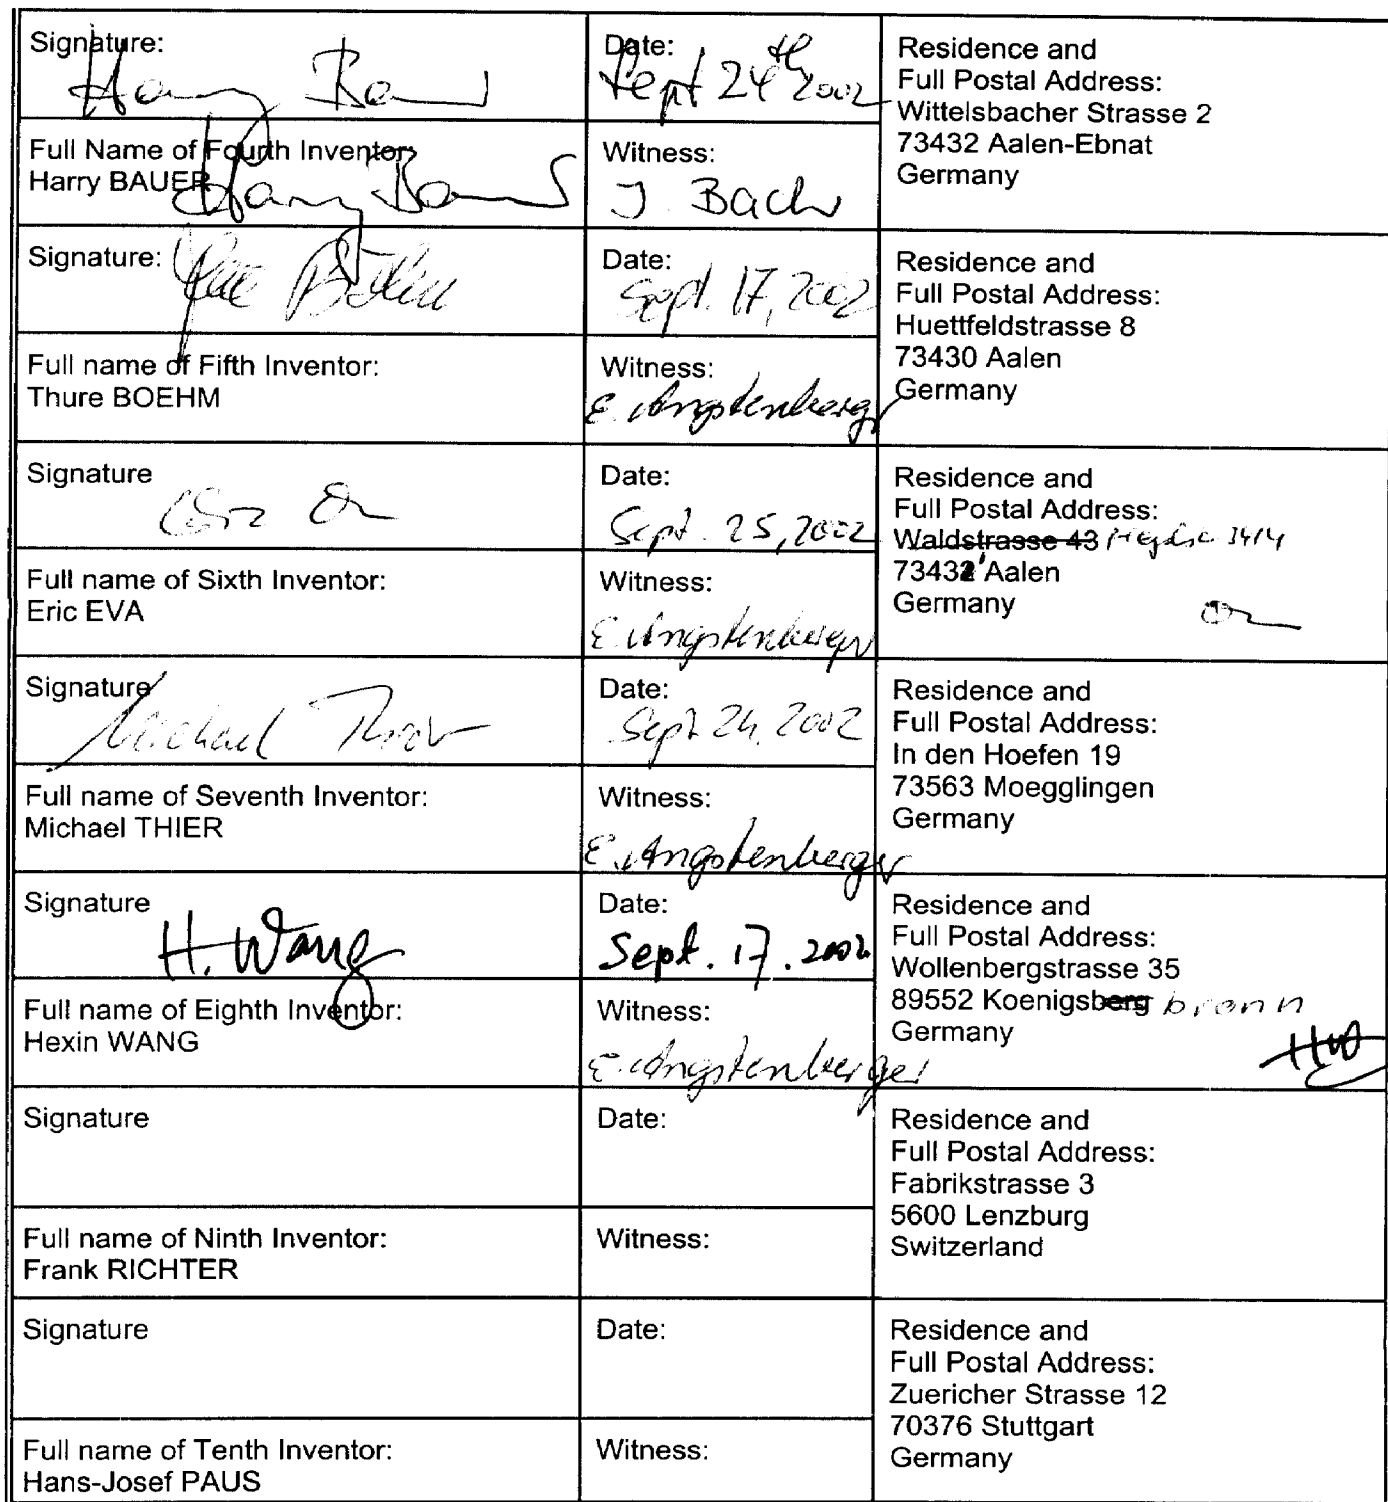 Signature:
Harry Bauer
Date:
Sept 24th 2002
Residence and
Full Postal Address:
Wittelsbacher Strasse 2
73432 Aalen-Ebnat
Germany
Full Name of Fourth Inventor:
Harry BAUER
Harry Bauer
Witness:
J. Bach
Signature:
Date:
Sept. 17, 2002
Residence and
Full Postal Address:
Huettfeldstrasse 8
73430 Aalen
Germany
Full name of Fifth Inventor:
Thure BOEHM
Witness:
E. Angstenberger
Signature
Date:
Sept. 25, 2002
Residence and
Full Postal Address:
Waldstrasse 43
Aalen
Germany
Full name of Sixth Inventor:
Eric EVA
Witness:
E. Angstenberger
Signature
Michael Thier
Date:
Sept 24, 2002
Residence and
Full Postal Address:
In den Hoefen 19
73563 Moegglingen
Germany
Full name of Seventh Inventor:
Michael THIER
Witness:
E. Angstenberger
Signature
H. Wang
Date:
Sept. 17. 2002
Residence and
Full Postal Address:
Wollenbergstrasse 35
89552 Koenigsberg bronn
Germany
HW
Full name of Eighth Inventor:
Hexin WANG
Witness:
E. Angstenberger
Signature
Date:
Residence and
Full Postal Address:
Fabrikstrasse 3
5600 Lenzburg
Switzerland
Full name of Ninth Inventor:
Frank RICHTER
Witness:
Signature
Date:
Residence and
Full Postal Address:
Zuericher Strasse 12
70376 Stuttgart
Germany
Full name of Tenth Inventor:
Hans-Josef PAUS
Witness: